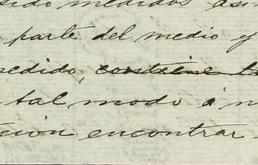 sido medidos así
parte del medio y
pedido, contiene
tal modo á m
ción encontrar